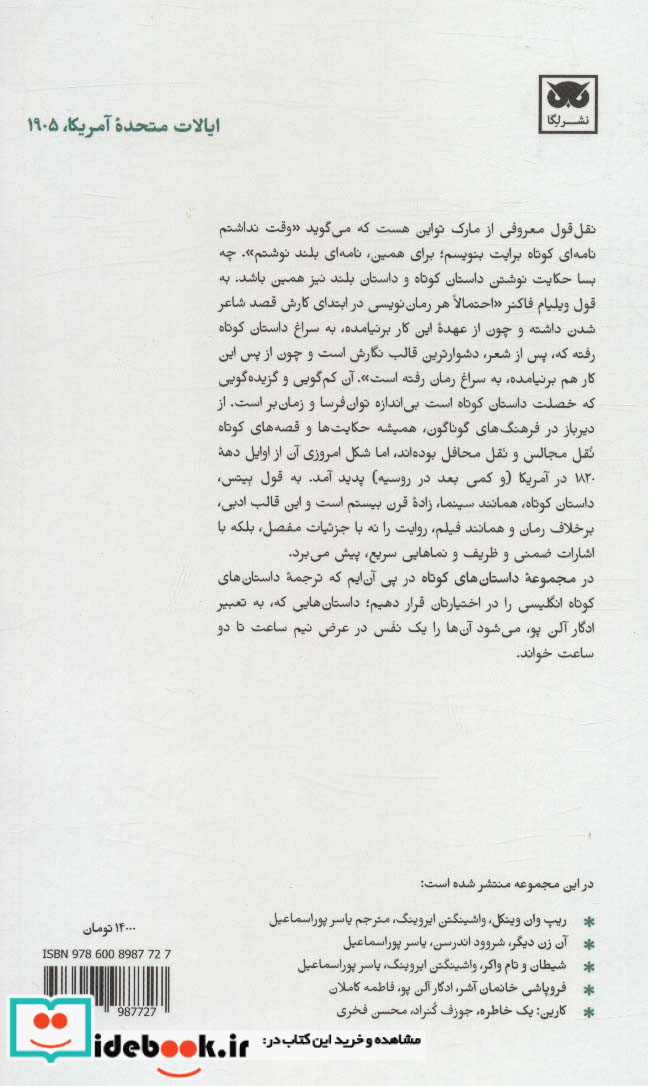 نشر لگا
ایالات متحدهٔ آمریکا، ۱۹۰۵
نقل‌قول معروفی از مارک تواین هست که می‌گوید «وقت نداشتم
نامه‌ای کوتاه برایت بنویسم؛ برای همین، نامه‌ای بلند نوشتم». چه
بسا حکایت نوشتن داستان کوتاه و داستان بلند نیز همین باشد. به
قول ویلیام فاکنر «احتمالاً هر رمان‌نویسی در ابتدای کارش قصد شاعر
شدن داشته و چون از عهدهٔ این کار برنیامده، به سراغ داستان کوتاه
رفته که، پس از شعر، دشوارترین قالب نگارش است و چون از پس این
کار هم برنیامده، به سراغ رمان رفته است». آن کم‌گویی و گزیده‌گویی
که خصلت داستان کوتاه است بی‌اندازه توان‌فرسا و زمان‌بر است. از
دیرباز در فرهنگ‌های گوناگون، همیشه حکایت‌ها و قصه‌های کوتاه
نُقل مجالس و نَقل محافل بوده‌اند، اما شکل امروزی آن از اوایل دههٔ
۱۸۲۰ در آمریکا (و کمی بعد در روسیه) پدید آمد. به قول بِیتس،
داستان کوتاه، همانند سینما، زادهٔ قرن بیستم است و این قالب ادبی،
برخلاف رمان و همانند فیلم، روایت را نه با جزئیات مفصل، بلکه با
اشارات ضمنی و ظریف و نماهایی سریع، پیش می‌برد.
در مجموعهٔ داستان‌های کوتاه در پی آن‌ایم که ترجمهٔ داستان‌های
کوتاه انگلیسی را در اختیارتان قرار دهیم؛ داستان‌هایی که، به تعبیر
ادگار آلن پو، می‌شود آن‌ها را یک نفَس در عرض نیم ساعت تا دو
ساعت خواند.
در این مجموعه منتشر شده است:
* ریپ وان وینکل، واشینگتن ایروینگ، مترجم یاسر پوراسماعیل
* آن زن دیگر، شروود اندرسن، یاسر پوراسماعیل
* شیطان و تام واکر، واشینگتن ایروینگ، یاسر پوراسماعیل
* فروپاشی خانمان آشر، ادگار آلن پو، فاطمه کاملان
* کارین: یک خاطره، جوزف کُنراد، محسن فخری
۱۴۰۰۰ تومان
ISBN 978 600 8987 72 7
987727
مشاهده و خرید این کتاب در:
idebook.ir